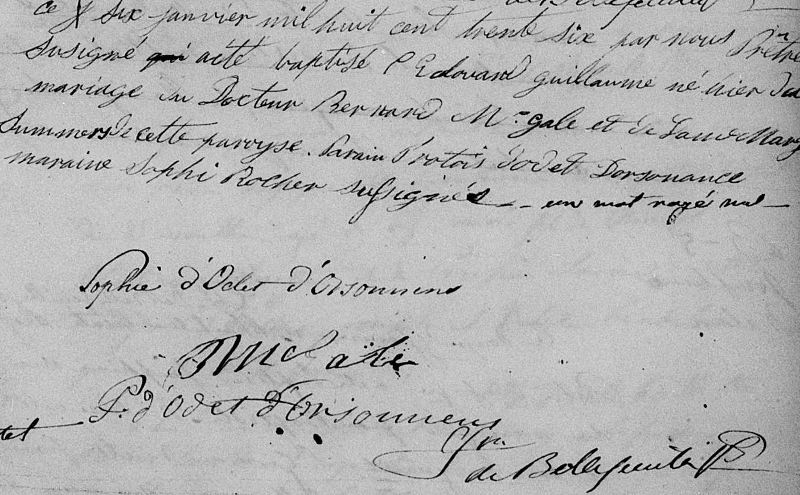 ce six janvier mil huit cent trente six par nous Prêtre
susigné qui acté baptisé Edouard guillaume né hier du
mariage du Docteur Bernard Mc gale et de Mary
Summers de cette paroyse. Parain Protois d'odet Dorsonance
maraine Sophi Rocher sussignés — un mot rayé nul —
Sophie d'Odet d'Orsonnens
P. d'Odet d'Orsonnens
de Bellefeuille Ptr